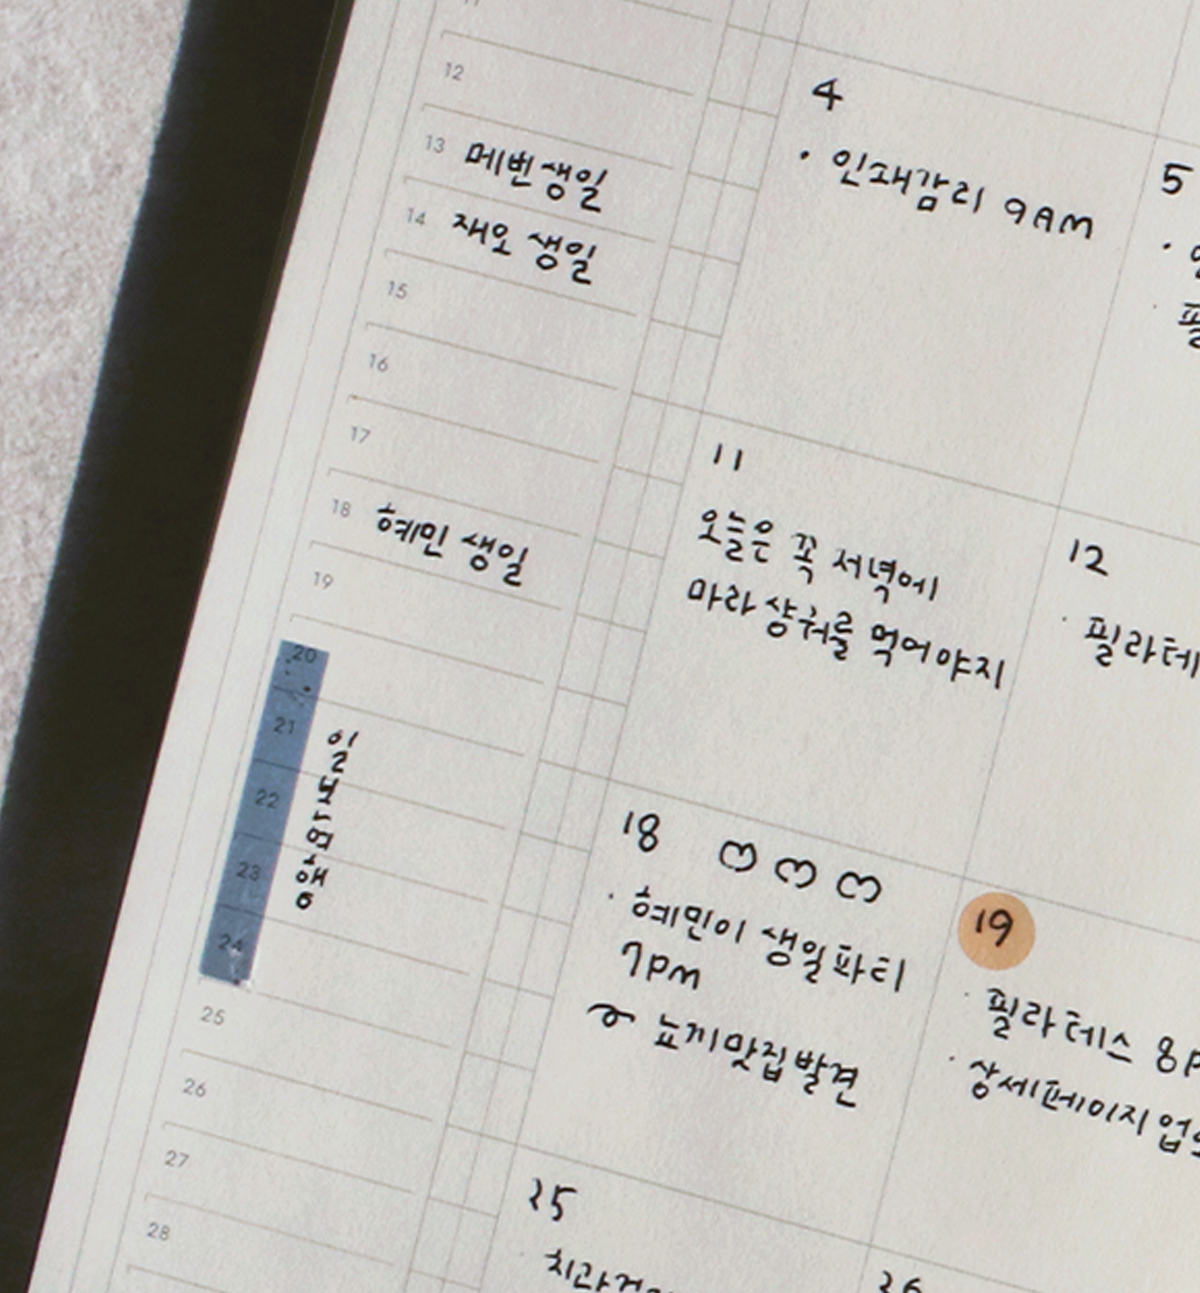 12
13 메변생일
14 재오 생일
15
16
17
18 혜민 생일
19
20
21
22
23
24
일본여행
25
26
27
28
4
· 인쇄감리 9AM
5
11
오늘은 꼭 저녁에
마라샹궈를 먹어야지
12
· 필라테
18
· 혜민이 생일파티
7pm
뇨끼맛집발견
19
· 필라테스 8P
· 상세페이지 업
25
26